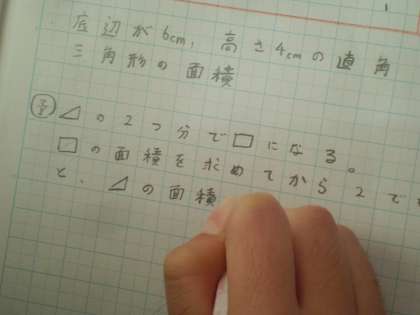 底辺が6cm,高さ4cmの直角
三角形の面積
の2つ分で□になる。
□の面積を求めてから2で
と、⊿の面積